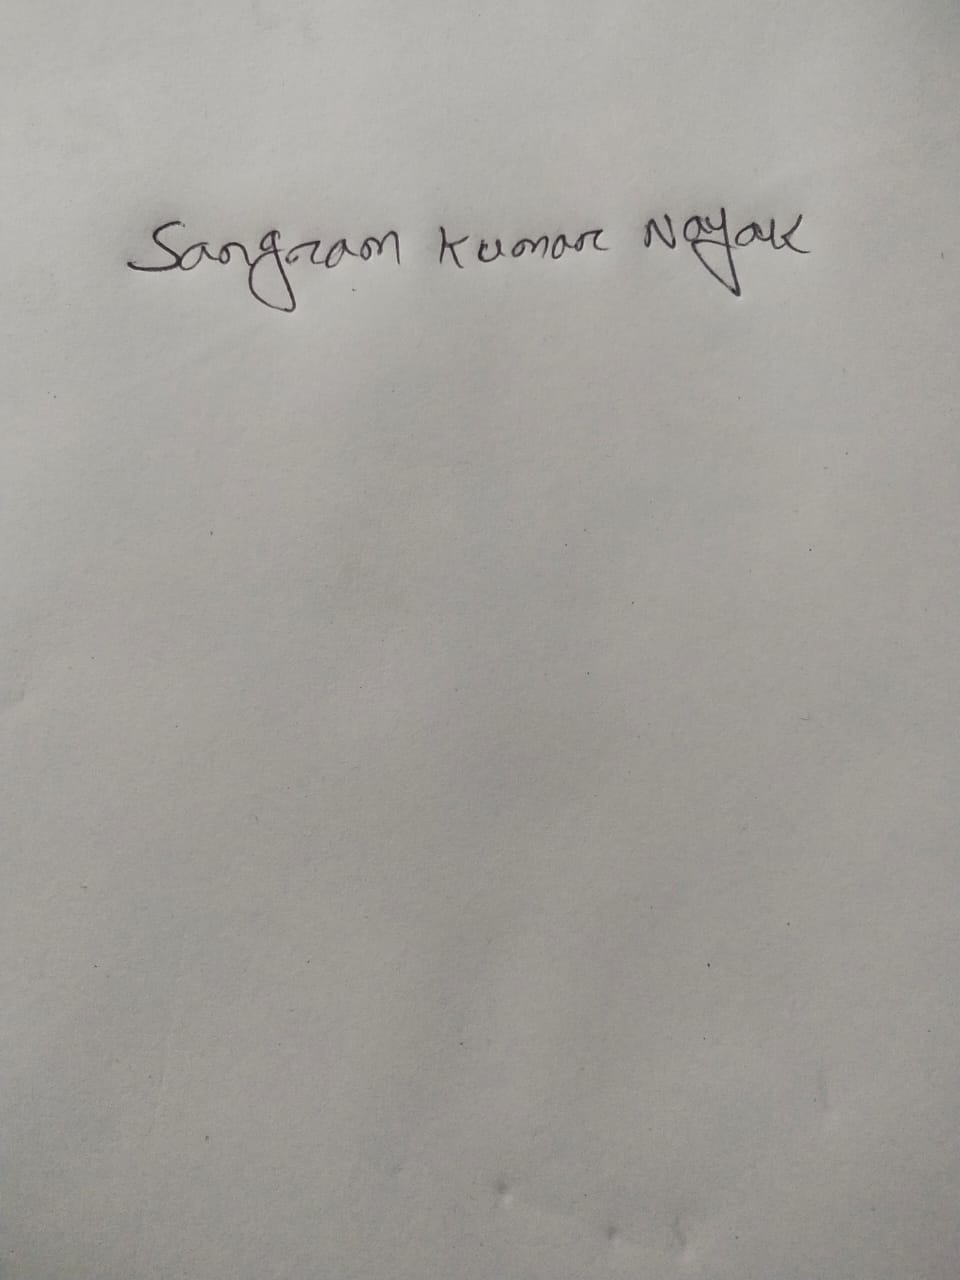 Sangram Kumar Nayak